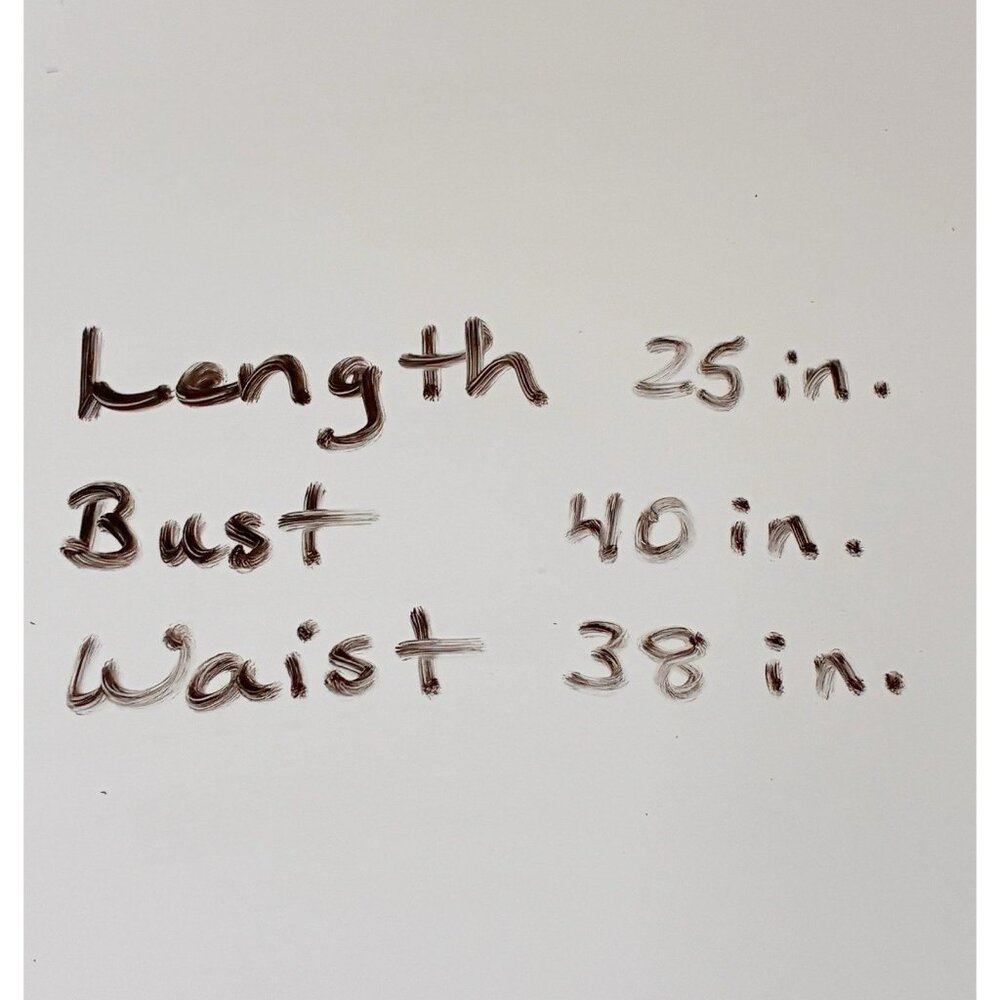 Length 25 in.
Bust 40 in.
Waist 38 in.